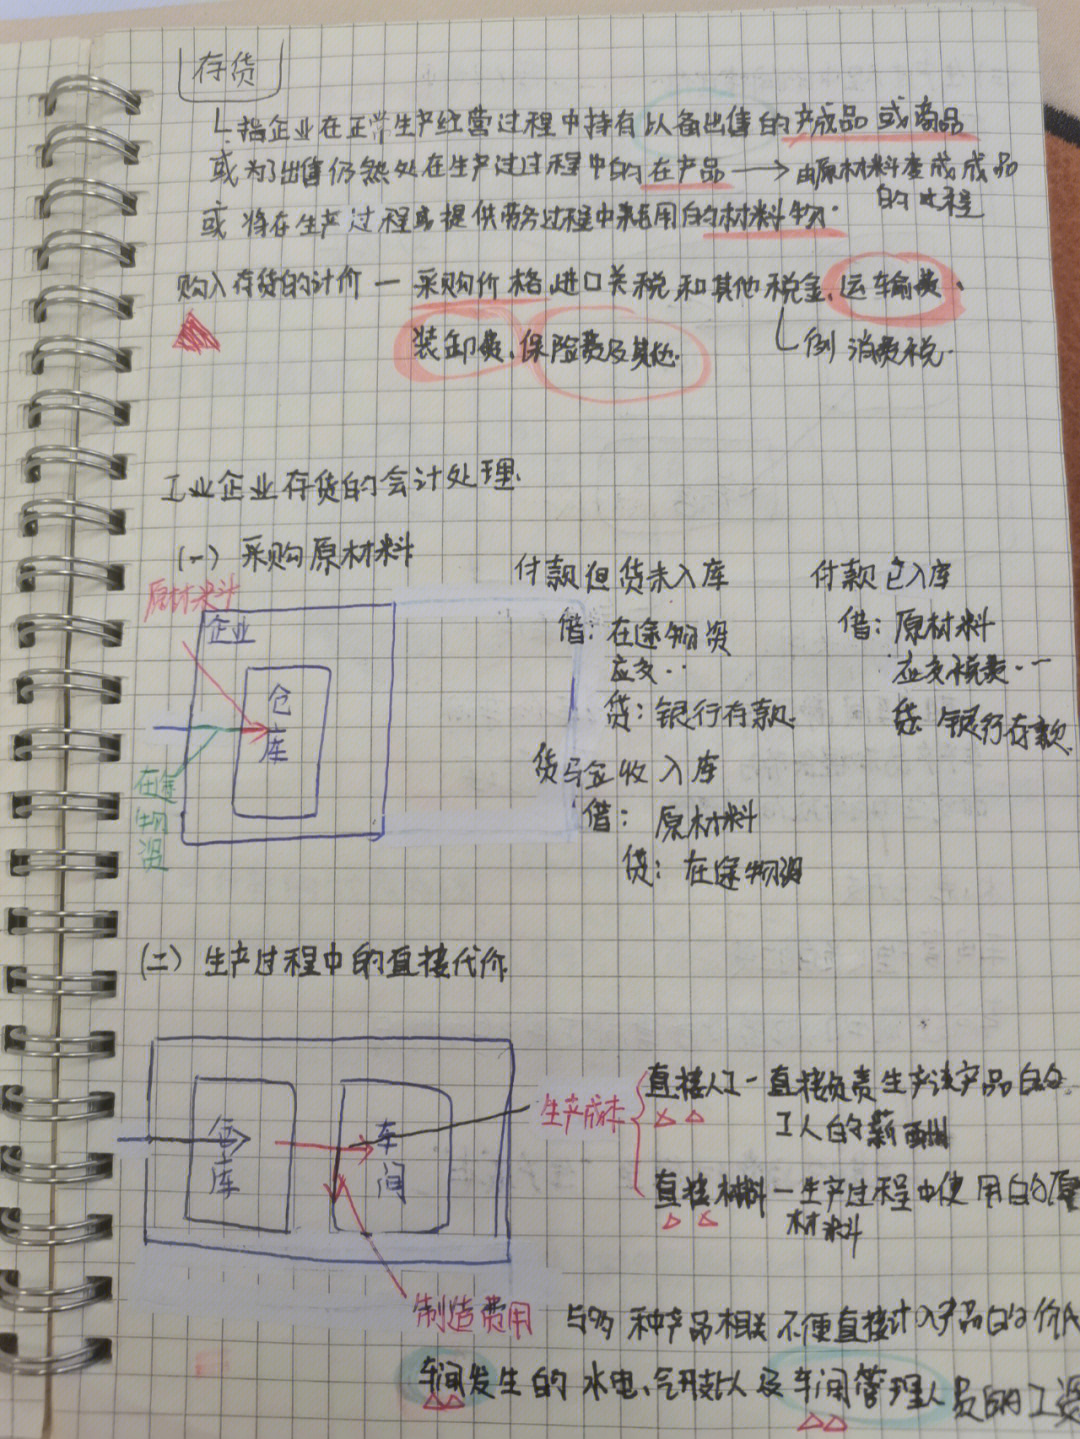 存货
指企业在正常生产经营过程中持有以备出售的产成品或商品
或为了出售仍然处在生产过过程中的在产品 → 由原材料变成成品
的过程
或将在生产过程或提供劳务过程中耗用的材料物.
购入存货的计价 — 采购价格.进口关税和其他税金、运输费、
装卸费、保险费及其他.
例 消费税.
工业企业存货的会计处理.
(一) 采购原材料
原材料
企业
仓库
在途物资
付款但货未入库
借: 在途物资
应交..
贷: 银行存款.
货验收入库
借: 原材料
贷: 在途物资
付款已入库
借: 原材料
应交税费..一
贷: 银行存款.
(二) 生产过程中的直接代价.
仓库
车间
生产成本
直接人工 - 直接负责生产该产品的
工人的薪酬
直接材料 — 生产过程中使用的原
材料
制造费用
与多种产品相关 不便直接计入产品的价
车间发生的水电、以及车间管理人员的工资